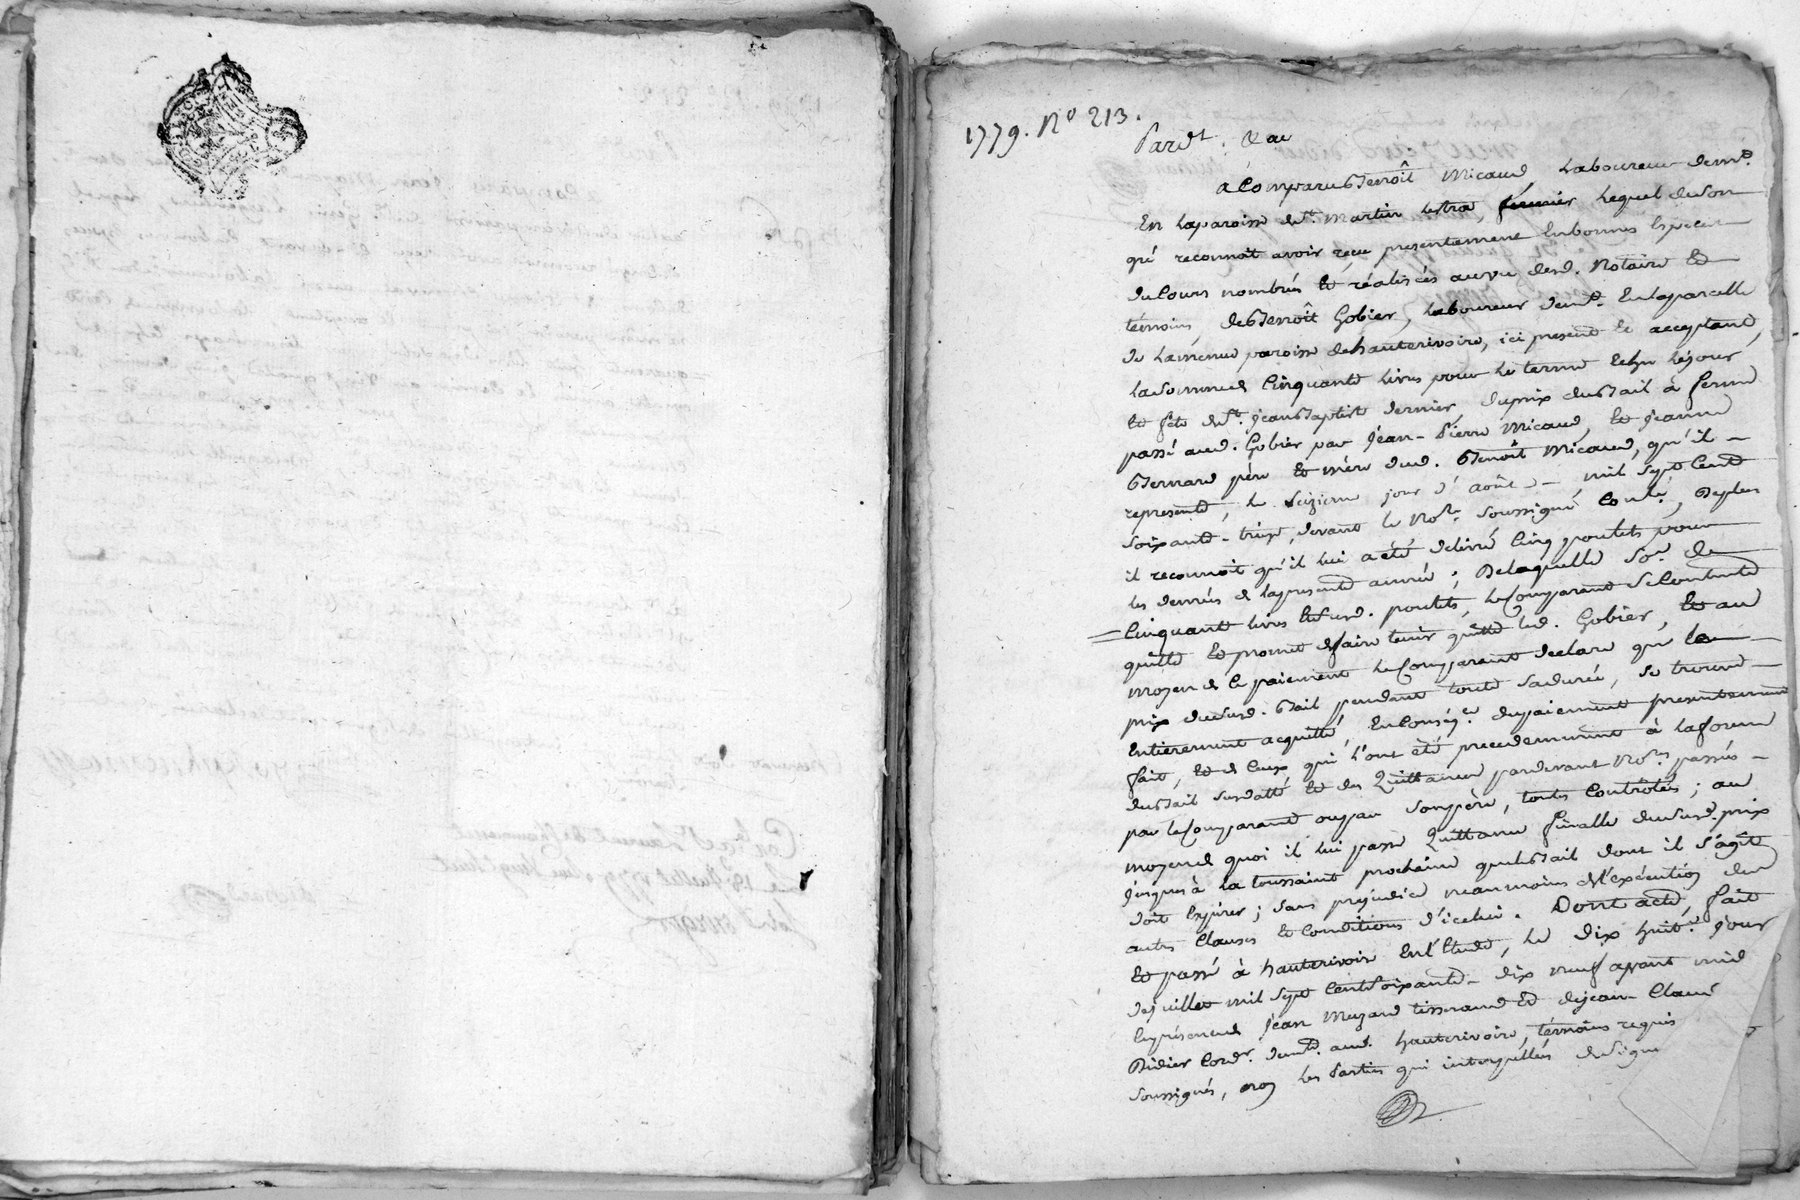 1779. N° 213.
Pard.t &a
a Comparu Benoît Micaud, Laboureur dem.t
En la paroisse de S.t Martin lestra, fermier, Lequel de son
gré reconnoit avoir reçu presentement En bonnes Especes
du Cours nombrés et réalisées au vu desd. Notaire Et
témoins, de Benoît Gobier, Laboureur dem.t En la parcelle
de La même paroisse de hauterivoire, ici present Et acceptant,
La Somme de Cinquante livres pour le terme Echu le jour
Et fête de S.t Jean Baptiste dernier, du prix du Bail à ferme
passé aud. Gobier par Jean-Pierre Micaud, Et Jeanne
Bernard père Et mère dud. Benoît Micaud, qu'il
represente, le Seizieme jour d'août mil sept Cent
soixante-treize, devant le No.re soussigné Conlé, De plus
il reconnoit qu'il lui a été délivré Cinq poulets pour
les denrées de la presente année ; De laquelle So.e de
Cinquante livres Et susd. poulets, le Comparant se Contente
quitte Et promet de faire tenir quitte led. Gobier, Et au
moyen de ce paiement le Comparant declare que le
prix du susd. Bail pendant toute sa durée, se trouve
Entierement acquitté, En Conséq.ce du paiement presentement
fait, Et de Ceux qui l'ont été precedemment à la forme
du Bail susdatté Et des Quittances pardevant No.res passées
par le Comparant ou par son père, toutes Contrôlées ; au
moyen de quoi il lui passe Quittance finalle du susd. prix
jusques à la toussaint prochaine que le Bail dont il s'agit
doit Expirer ; sans préjudice neanmoins de l'exécution des
autres Clauses Et Conditions d'icelui. Dont acte, fait
Et passé à hauterivoire En l'Etude, le dix huit.e jour
de juillet mil sept Cent soixante-dix neuf avant midi
En présence de Jean Muzard tisserand Et de Jean-Claude
Didier Cord.r dem.t aud. hauterivoire, témoins requis
soussignés, non les Parties qui interpellées de signer